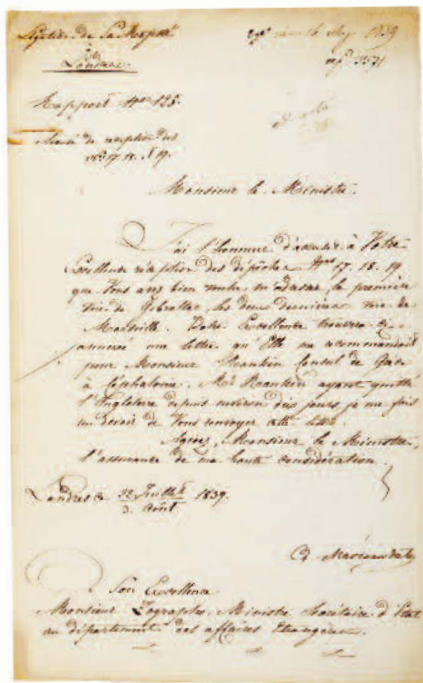 Légation de Sa Majesté
à
Londres.
1839
Rapport Nro 125.
Accusé de réception des
Nros 17. 18. & 19.
Monsieur le Ministre.
J'ai l'honneur d'accuser à Votre
Excellence réception des dépêches Nros 17. 18. 19
que Vous avez bien voulu m'adresser la première
de Gibraltar, les deux dernières de
Marseille. Votre Excellence trouvera ci-
annexé une lettre qu'Elle me recommandait
pour Monsieur Consul de Grèce
à Céphalonie. Mr ayant quitté
l'Angleterre depuis environ dix jours je me fais
un devoir de Vous renvoyer cette lettre.
Agréez, Monsieur le Ministre,
l'assurance de ma haute considération.
Londres ce 22 Juillet 1839.
3. Août
Son Excellence
Monsieur Zographo, Ministre Secrétaire d'Etat
au département des affaires Etrangères.